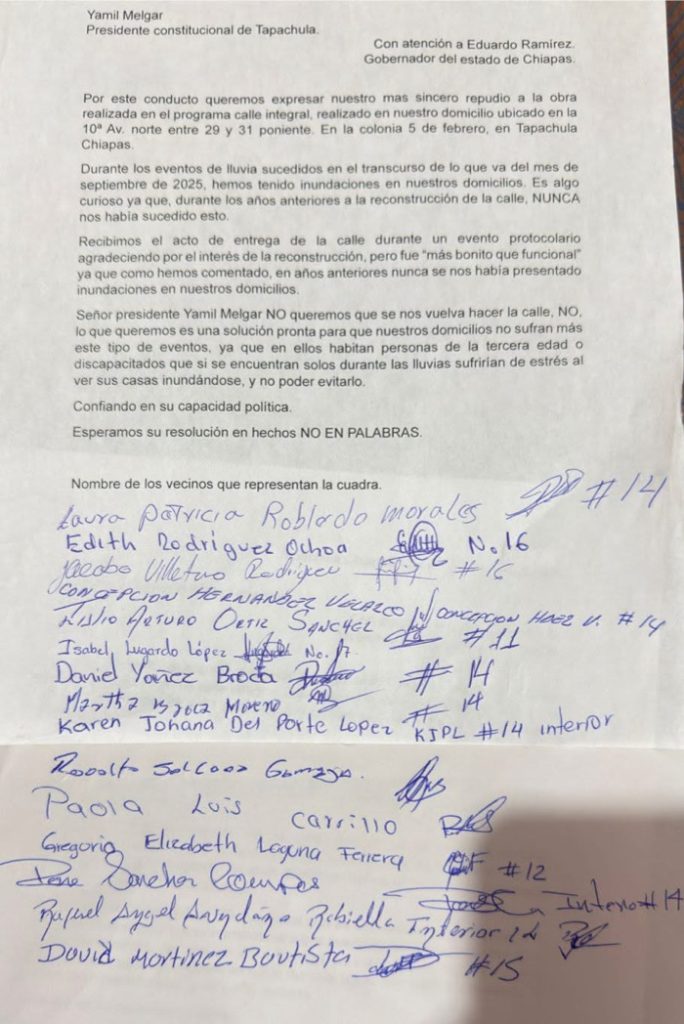 Yamil Melgar
Presidente constitucional de Tapachula.
Con atención a Eduardo Ramírez.
Gobernador del estado de Chiapas.
Por este conducto queremos expresar nuestro mas sincero repudio a la obra
realizada en el programa calle integral, realizado en nuestro domicilio ubicado en la
10ª Av. norte entre 29 y 31 poniente. En la colonia 5 de febrero, en Tapachula
Chiapas.
Durante los eventos de lluvia sucedidos en el transcurso de lo que va del mes de
septiembre de 2025, hemos tenido inundaciones en nuestros domicilios. Es algo
curioso ya que, durante los años anteriores a la reconstrucción de la calle, NUNCA
nos había sucedido esto.
Recibimos el acto de entrega de la calle durante un evento protocolario
agradeciendo por el interés de la reconstrucción, pero fue "más bonito que funcional"
ya que como hemos comentado, en años anteriores nunca se nos había presentado
inundaciones en nuestros domicilios.
Señor presidente Yamil Melgar NO queremos que se nos vuelva hacer la calle, NO,
lo que queremos es una solución pronta para que nuestros domicilios no sufran más
este tipo de eventos, ya que en ellos habitan personas de la tercera edad o
discapacitados que si se encuentran solos durante las lluvias sufrirían de estrés al
ver sus casas inundándose, y no poder evitarlo.
Confiando en su capacidad política.
Esperamos su resolución en hechos NO EN PALABRAS.
Nombre de los vecinos que representan la cuadra.
Laura Patricia Robledo morales #14
Edith Rodríguez Ochoa No.16
Jacobo Rodriguez #16
CONCEPCION HERNANDEZ VELAZCO CONCEPCION HDEZ V. #14
ARTURO ORTIZ SANCHEZ #11
Isabel Lugardo López No. 17
Daniel Yañez Broca #14
Martha Broca Moreno #14
Karen Johana Del Porte Lopez KJPL #14 interior
Rodolfo
Paola Luis Carrillo
Gregoria Elizabeth Laguna Ferrera #12
Sanchez Campos Interior #14
Angel Interior 14
David Martinez Bautista #15